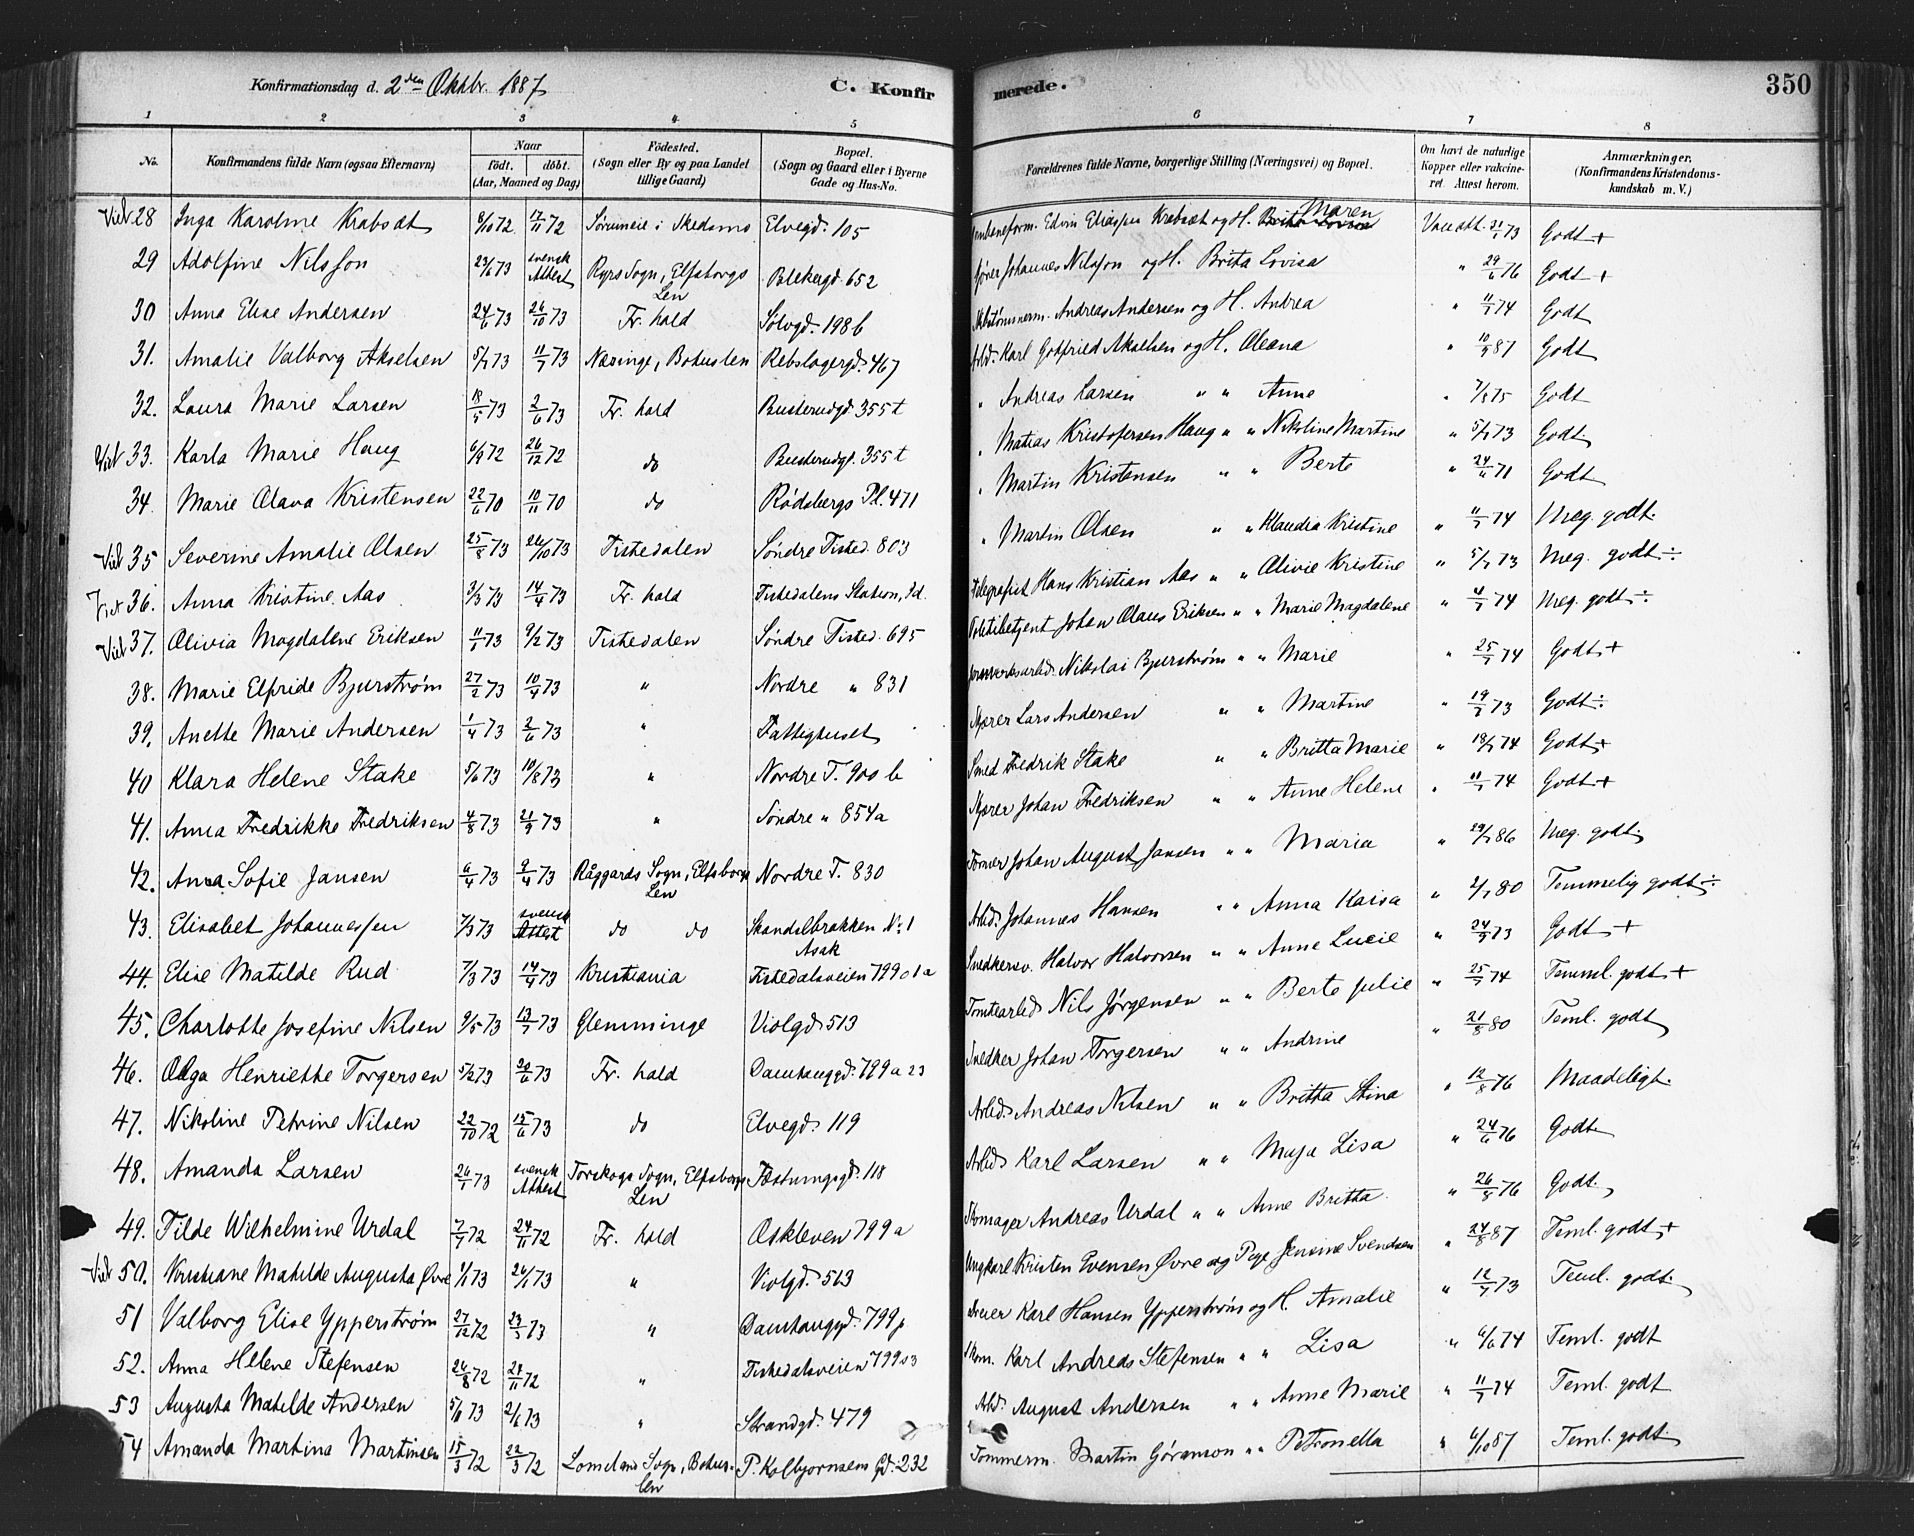 Konfirmationsdag d. 2den Oktbr. 1887
C. Konfir
merede.
350
1 2 3 4 5 6 7 8
No. Konfirmandens fulde Navn (ogsaa Efternavn) Naar födt. döbt. (Aar, Maaned og Dag) Födested. (Sogn eller By og paa Landet tillige Gaard) Bopæl. (Sogn og Gaard eller i Byerne Gade og Hus-No.
Forældrenes fulde Navne, borgerlige Stilling (Næringsvei) og Bopæl. Om havt de naturlige Kopper eller vakcineret. Attest herom. Anmærkninger. (Konfirmandens Kristendomskundskab m. V.)
28 Inga Karoline Krabsæt 8/10 72 17/11 72 Sørumeie i Skedsmo Elvegd. 105 Edvin Eliassen Krabsæt og H. Maren Vac. att. 73 Godt +
29 Adolfine Nilsson 23/6 73 svensk Attest Ryrs Sogn, Elfsborgs Len Blekergd. 652 Johannes Nilsson og H. Brita Lovisa " 29/6 76 Godt +
30 Anna Elise Andersen 24/6 73 26/10 73 Fr. hald Sølvgd. 198 b Andreas Andersen og H. Andrea " 11/7 74 Godt
31. Amalie Valborg Akselsen 5/7 73 11/7 73 Næsinge, Bohuslen Rebslagergd. 467 Arbd. Karl Gotfried Akselsen og H. Oleana " 10/9 87 Godt
32. Laura Marie Larsen 18/5 73 2/6 73 Fr. hald Busterudgd. 355 t " Andreas Larsen " " Anne " 7/8 75 Godt
33. Karla Marie Haug 6/9 72 26/12 72 do Busterudgd. 355 t " Matias Kristofersen Haug " " Nikoline Martine " 5/7 73 Godt
34. Marie Olava Kristensen 22/6 70 10/11 70 do Rødsbergs Pl. 471 " Martin Kristensen " " Berte " 24/6 71 Godt
35 Severine Amalie Olsen 25/8 73 26/10 73 Tistedalen Søndre Tisted. 803 " Martin Olsen " " Klaudia Kristine " 11/7 74 Meg. godt.
36. Anna Kristine Aas 3/3 73 14/4 73 Fr. hald Tistedalens Station, Id. Telegrafist Hans Kristian Aas " " Olivie Kristine " 5/7 73 Meg. godt ÷
37. Olivia Magdalene Eriksen 11/1 73 9/2 73 Tistedalen Søndre Tisted. 695 Politibetjent Johan Olaus Eriksen " " Marie Magdalene " 11/7 74 Meg. godt ÷
38. Marie Elfride Bjurstrøm 27/2 73 10/4 73 " Nordre " 831 Nikolai Bjurstrøm " " Marie " 25/7 74 Godt +
39. Anette Marie Andersen 1/4 73 2/6 73 " Fattighuset Skjærer Lars Andersen " " Martine " 19/7 73 Godt ÷
40 Klara Helene Stake 5/6 73 10/8 73 " Nordre T. 900 b Smed Fredrik Stake " " Britta Marie " 18/7 74 Godt +
41. Anna Fredrikke Fredriksen 4/8 73 21/9 73 " Söndre " 854a Skjærer Johan Fredriksen " " Anne Helene " 11/7 74 Godt +
42. Anna Sofie Jansen 6/4 73 9/4 73 Råggards Sogn, Elfsborgs Len Nordre T. 830 Johan August Jansen " " Maria " 29/7 86 Meg. godt
43. Elisabet Johannessen 7/3 73 svensk Attest do do Skandalbrakken No 1 Asak Arbd. Johannes Hansen " " Anna Kaisa " 2/7 80 Temmelig godt ÷
44. Elise Matilde Rud 7/3 73 14/4 73 Kristiania Tistedalsveien 799 o 1 a Snedkersv. Halvor Halvorsen " " Anne Lucie " 24/9 73 Godt +
45. Charlotte Josefine Nilsen 9/5 73 13/7 73 Glemminge Violgd 513 Tomtearbd. Nils Jørgensen " " Berte Julie " 25/7 74 Temml. godt +
46. Olga Henriette Torgersen 5/2 73 29/6 73 Fr. hald Damhaugd. 799 a 23 Snedker Johan Torgersen " " Andrine " 21/8 80 Teml. godt
47. Nikoline Petrine Nilsen 22/10 72 15/6 73 do Elvegd. 119 Arbd. Andreas Nilsen " " Britta Stina " 12/8 76 Maadeligt.
48. Amanda Larsen 26/1 73 svensk Attest Torskogs Sogn, Elfsborgs Len Fæstningsgd. 118 Arbd. Karl Larsen " " Maja Lisa " 24/6 76 Godt
49. Tilde Wilhelmine Urdal 7/7 72 24/11 72 Fr. hald Oskleven 799 a Skomager Andreas Urdal " " Anne Britta " 26/8 76 Godt
50. Kristiane Matilde Augusta Øvre 1/1 73 26/1 73 " Violgd. 513 Ungkarl Kristen Evensen Øvre og Pige Jensine Svendsen " 24/8 87 Teml. godt +
51 Valborg Elise Ypperstrøm 27/12 72 23/3 73 " Damhaugd. 799 p Karl Hansen Ypperstrøm og H. Amalie " 12/7 73 Teml. godt
52. Anna Helene Stefensen 26/8 72 24/11 72 " Tistedalsveien 799 s 3 Skom. Karl Andreas Stefensen " " Lisa " 6/6 74 Teml. godt
53 Augusta Matilde Andersen 5/1 73 2/6 73 " Strandgd. 479 Arbd. August Andersen " " Anne Marie " 11/7 74 Teml. godt
54 Amanda Martina Martinsen 15/3 72 22/3 72 Lomelands Sogn, Bohuslen P. Kolbjørnsens Gd. 232 Tømmerm. Martin Göranson " " Petronella " 6/10 87 Teml. godt